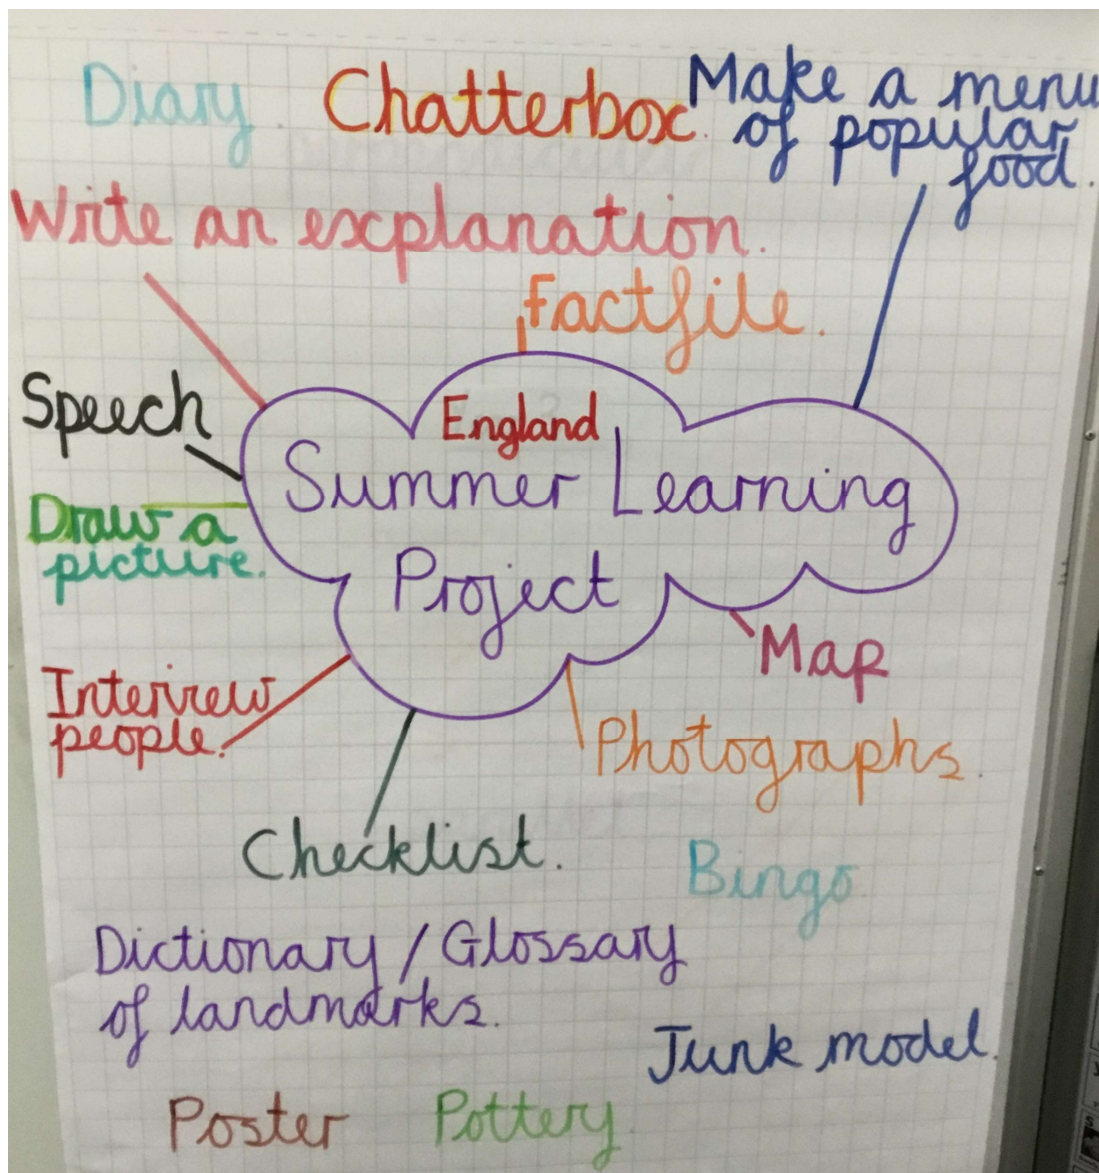 Diary.
Chatterbox.
Make a menu
of popular
food.
Write an explanation.
Factfile.
Speech
England
Summer Learning
Project
Draw a
picture.
Map
Interview
people.
Photographs.
Checklist.
Bingo
Dictionary / Glossary
of landmarks.
Junk model.
Poster
Pottery